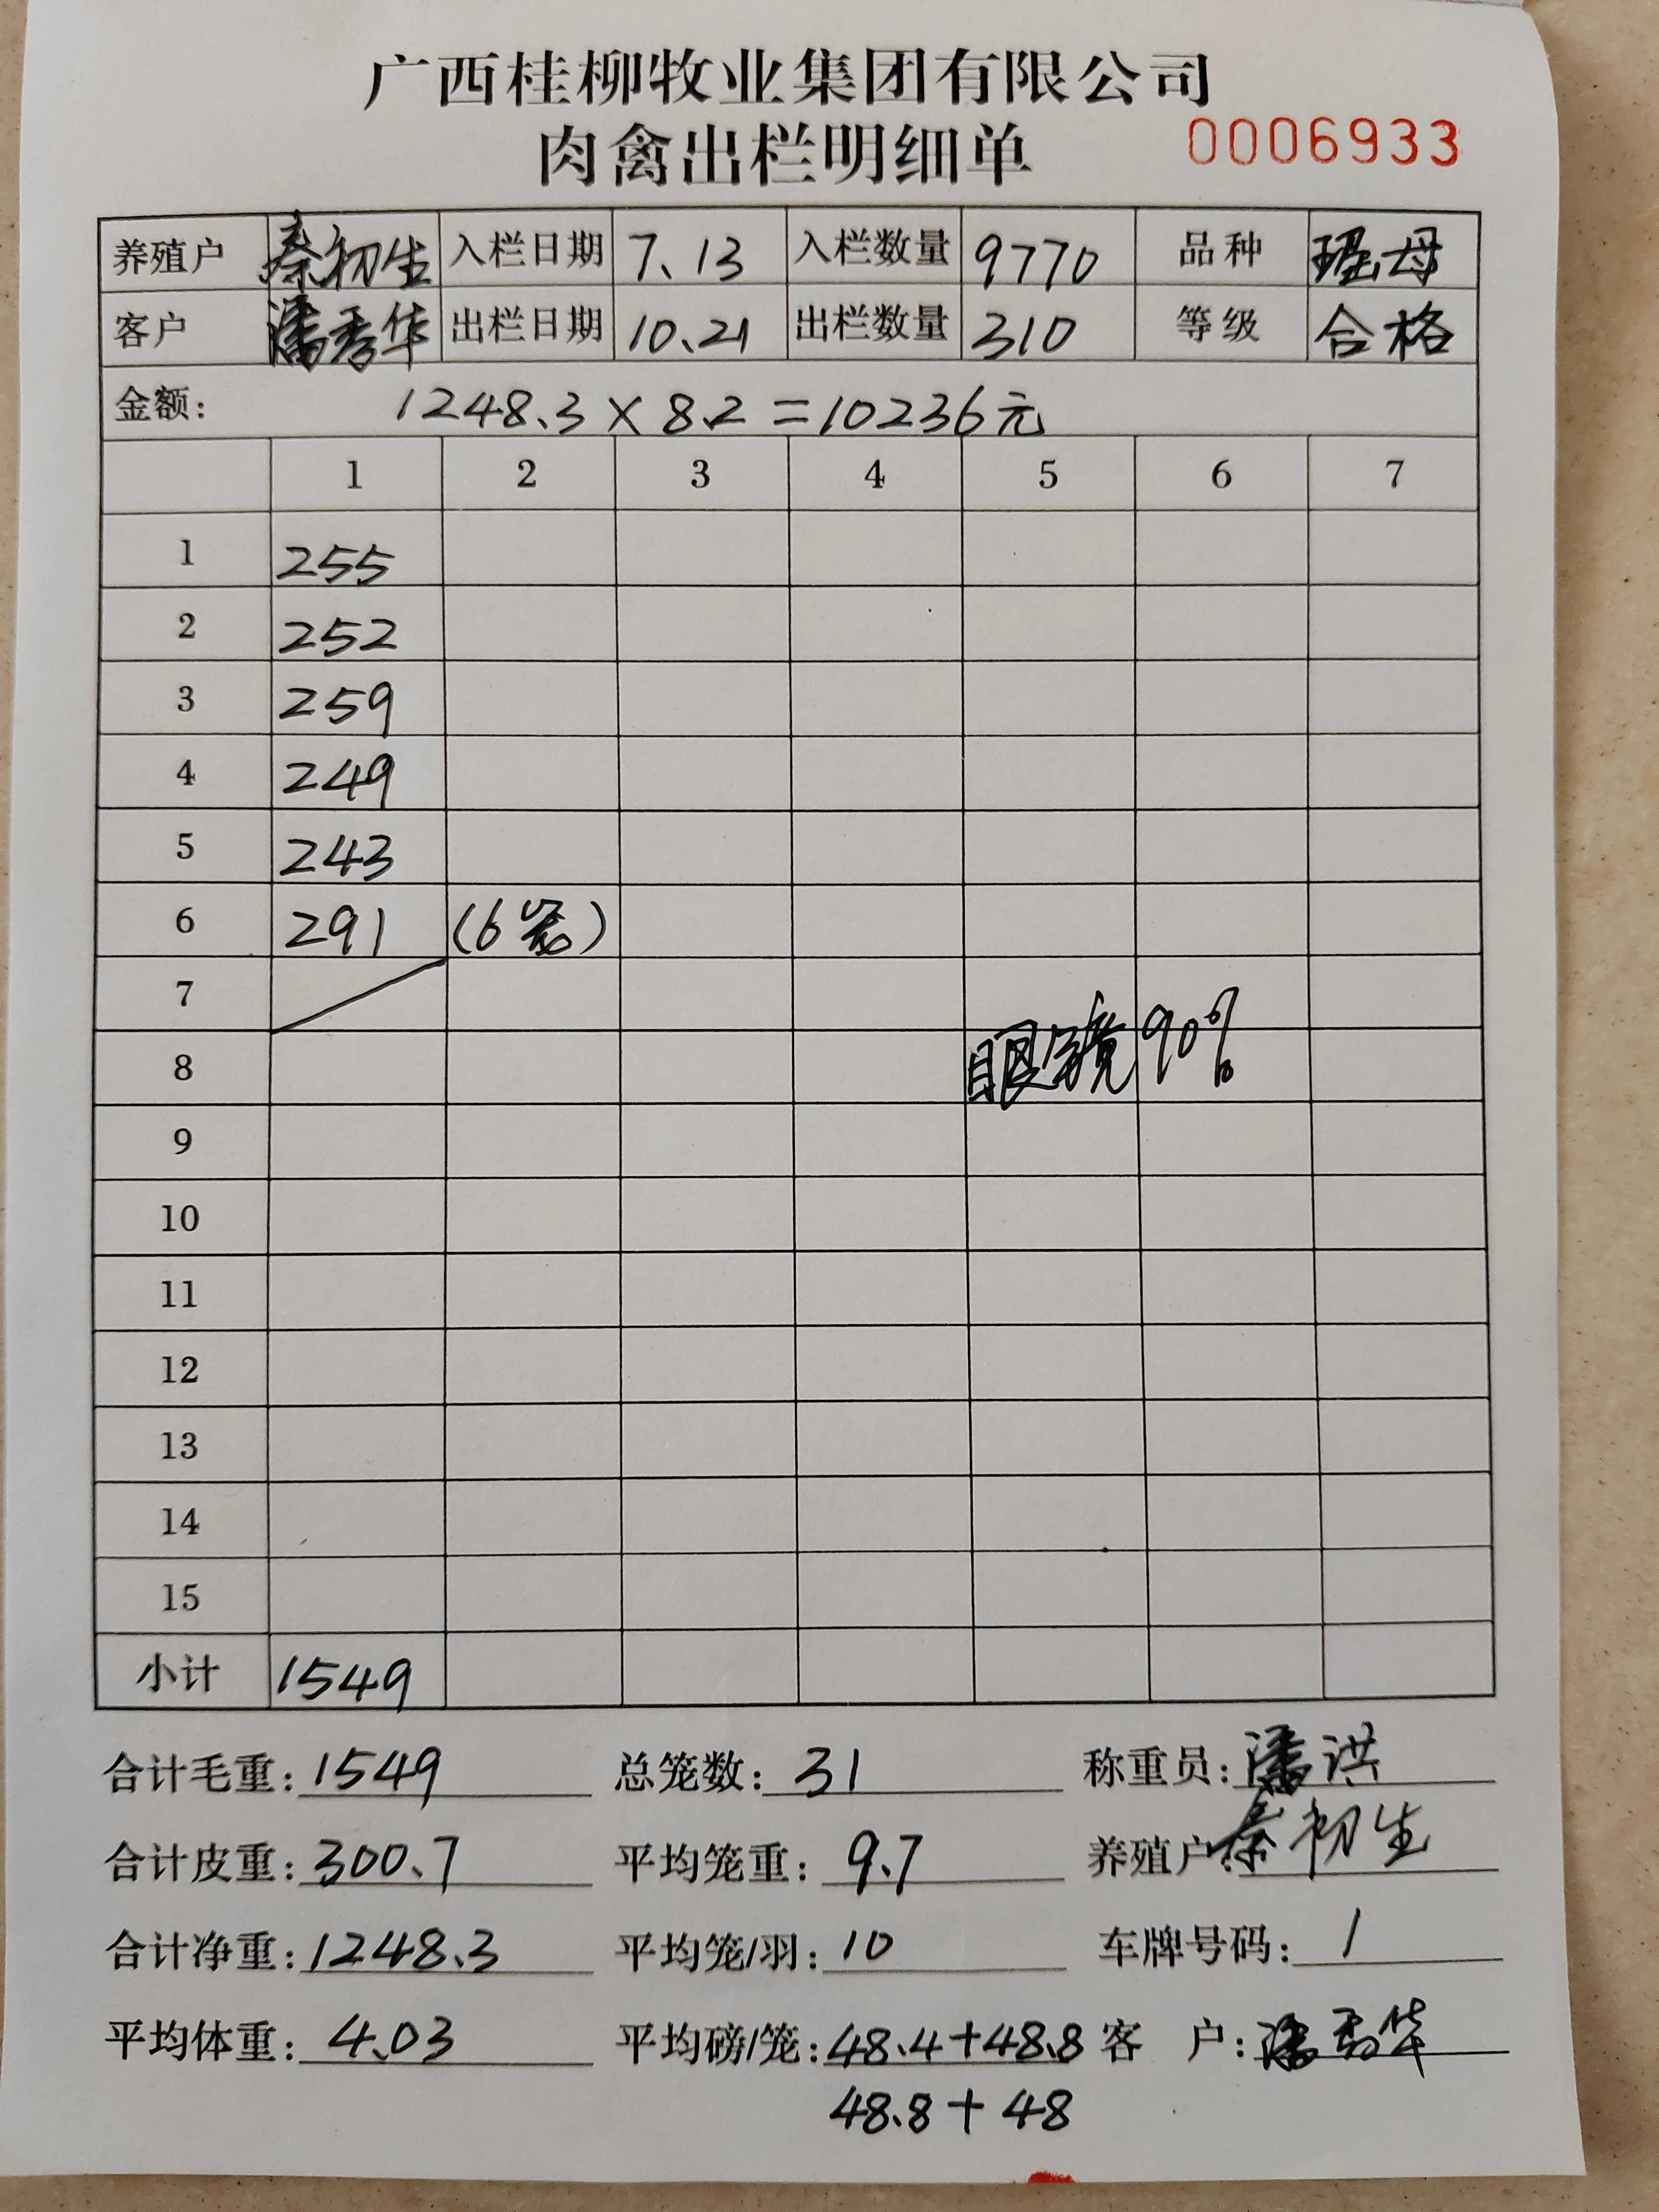 广西桂柳牧业集团有限公司
肉禽出栏明细单 0006933
养殖户 秦初生 入栏日期 7、13 入栏数量 9770 品种 瑶母
客户 潘秀华 出栏日期 10、21 出栏数量 310 等级 合格
金额： 1248.3 × 8.2 = 10236元
1 2 3 4 5 6 7
1 255
2 252
3 259
4 249
5 243
6 291 (6笼)
7
眼镜90%
8
9
10
11
12
13
14
15
小计 1549
合计毛重：1549 总笼数：31 称重员：潘洪
合计皮重：300.7 平均笼重：9.7 养殖户：秦初生
合计净重：1248.3 平均笼/羽：10 车牌号码：1
平均体重：4.03 平均磅/笼：48.4+48.8 客 户：潘秀华
48.8+48